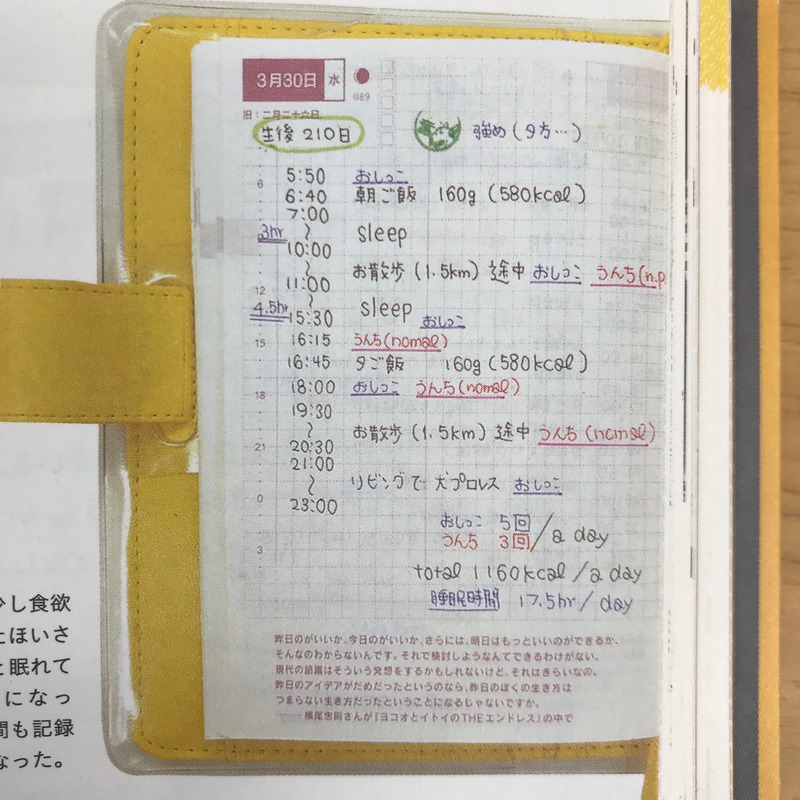 3月30日 水
089
旧:二月二十六日
生後 210日
強め(夕方…)
6 5:50 おしっこ
6:40 朝ご飯 160g (580kcal)
7:00
3hr 〜 sleep
10:00
〜 お散歩(1.5km) 途中 おしっこ うんち(n.p
12 11:00
4.5hr 〜 sleep
15:30 おしっこ
15 16:15 うんち(nomal)
16:45 夕ご飯 160g (580kcal)
18 18:00 おしっこ うんち(nomal)
19:30
〜 お散歩(1.5km) 途中 うんち(nomal)
21 20:30
21:00
〜 リビングで 犬プロレス おしっこ
0 23:00
おしっこ 5回
うんち 3回/a day
3
total 1160kcal/a day
睡眠時間 17.5hr/day
昨日のがいいか、今日のがいいか、さらには、明日はもっといいのができるか、
そんなのわからないんです。それで検討しようなんてできるわけがない。
現代の組織はそういう発想をするかもしれないけど、それはきらいなの。
昨日のアイデアがだめだったというのなら、昨日のぼくの生き方は
つまらない生き方だったということになるじゃないですか。
——横尾忠則さんが『ヨコオとイトイのTHEエンドレス』の中で
少し食欲
とほいさ
と眠れて
になっ
間も記録
なった。